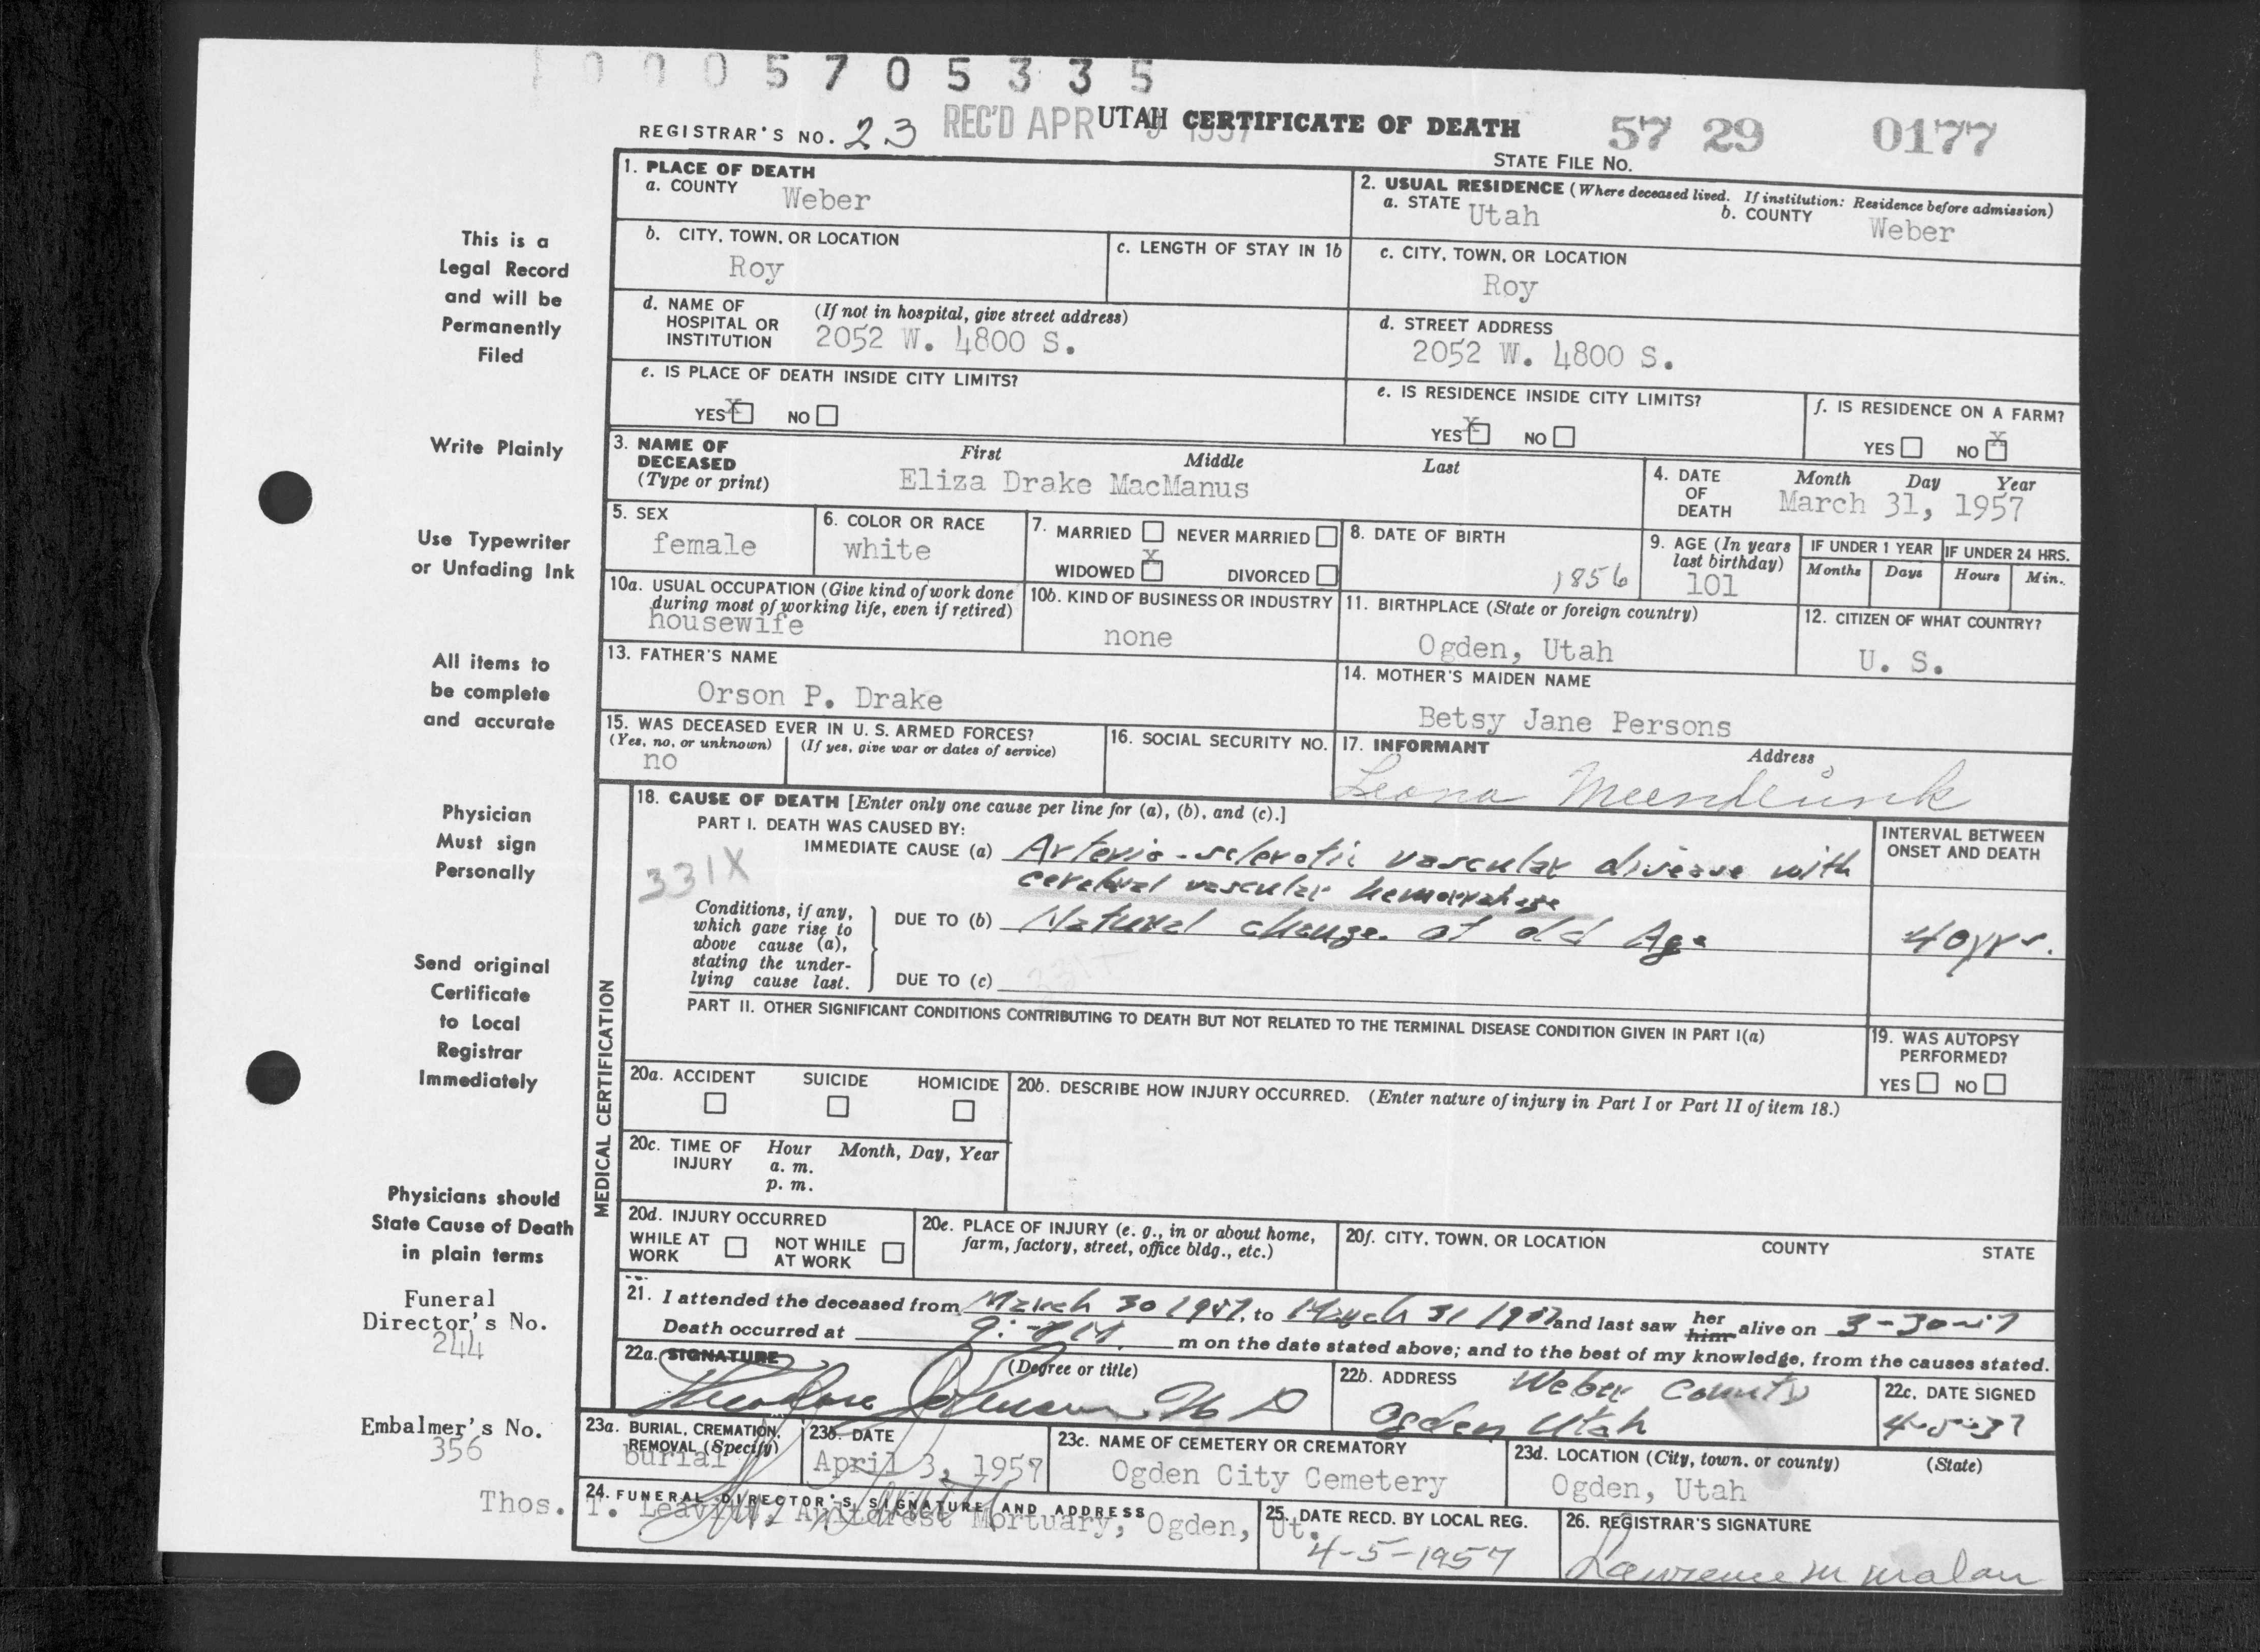 0005705335
REGISTRAR'S NO. 23 REC'D APR 9 1957 UTAH CERTIFICATE OF DEATH 57 29 0177
STATE FILE NO.
This is a
Legal Record
and will be
Permanently
Filed
Write Plainly
Use Typewriter
or Unfading Ink
All items to
be complete
and accurate
Physician
Must sign
Personally
Send original
Certificate
to Local
Registrar
Immediately
Physicians should
State Cause of Death
in plain terms
Funeral
Director's No.
244
Embalmer's No.
356
1. PLACE OF DEATH
a. COUNTY Weber
2. USUAL RESIDENCE (Where deceased lived. If institution: Residence before admission)
a. STATE Utah b. COUNTY Weber
b. CITY, TOWN, OR LOCATION
Roy
c. LENGTH OF STAY IN 1b
c. CITY, TOWN, OR LOCATION
Roy
d. NAME OF (If not in hospital, give street address)
HOSPITAL OR
INSTITUTION 2052 W. 4800 S.
d. STREET ADDRESS
2052 W. 4800 S.
e. IS PLACE OF DEATH INSIDE CITY LIMITS?
YES X NO
e. IS RESIDENCE INSIDE CITY LIMITS?
YES X NO
f. IS RESIDENCE ON A FARM?
YES NO X
3. NAME OF First Middle Last
DECEASED
(Type or print) Eliza Drake MacManus
4. DATE Month Day Year
OF
DEATH March 31, 1957
5. SEX
female
6. COLOR OR RACE
white
7. MARRIED NEVER MARRIED
WIDOWED X DIVORCED
8. DATE OF BIRTH
1856
9. AGE (In years
last birthday)
101
IF UNDER 1 YEAR
Months Days
IF UNDER 24 HRS.
Hours Min.
10a. USUAL OCCUPATION (Give kind of work done
during most of working life, even if retired)
housewife
10b. KIND OF BUSINESS OR INDUSTRY
none
11. BIRTHPLACE (State or foreign country)
Ogden, Utah
12. CITIZEN OF WHAT COUNTRY?
U. S.
13. FATHER'S NAME
Orson P. Drake
14. MOTHER'S MAIDEN NAME
Betsy Jane Persons
15. WAS DECEASED EVER IN U. S. ARMED FORCES?
(Yes, no, or unknown) (If yes, give war or dates of service)
no
16. SOCIAL SECURITY NO.
17. INFORMANT Address
Leona
MEDICAL CERTIFICATION
18. CAUSE OF DEATH [Enter only one cause per line for (a), (b), and (c).]
PART I. DEATH WAS CAUSED BY:
IMMEDIATE CAUSE (a) Arterio-sclerotic vascular disease with
cerebral vascular hemorrahage
331X
INTERVAL BETWEEN
ONSET AND DEATH
Conditions, if any,
which gave rise to
above cause (a),
stating the under-
lying cause last.
DUE TO (b) Natural change of old Age 40 yrs.
DUE TO (c)
331X
PART II. OTHER SIGNIFICANT CONDITIONS CONTRIBUTING TO DEATH BUT NOT RELATED TO THE TERMINAL DISEASE CONDITION GIVEN IN PART I(a)
19. WAS AUTOPSY
PERFORMED?
YES NO
20a. ACCIDENT SUICIDE HOMICIDE
20b. DESCRIBE HOW INJURY OCCURRED. (Enter nature of injury in Part I or Part II of item 18.)
20c. TIME OF Hour Month, Day, Year
INJURY a. m.
p. m.
20d. INJURY OCCURRED
WHILE AT NOT WHILE
WORK AT WORK
20e. PLACE OF INJURY (e. g., in or about home,
farm, factory, street, office bldg., etc.)
20f. CITY, TOWN, OR LOCATION COUNTY STATE
21. I attended the deceased from March 30 1957, to March 31 1957 and last saw her him alive on 3-30-57
Death occurred at m on the date stated above; and to the best of my knowledge, from the causes stated.
22a. SIGNATURE (Degree or title)
Theodore
22b. ADDRESS Weber County
Ogden Utah
22c. DATE SIGNED
4-5-57
23a. BURIAL, CREMATION,
REMOVAL (Specify)
burial
23b. DATE
April 3, 1957
23c. NAME OF CEMETERY OR CREMATORY
Ogden City Cemetery
23d. LOCATION (City, town, or county) (State)
Ogden, Utah
24. FUNERAL DIRECTOR'S SIGNATURE AND ADDRESS
Thos. T. Leavitt, Mortuary, Ogden, Ut.
25. DATE RECD. BY LOCAL REG.
4-5-1957
26. REGISTRAR'S SIGNATURE
Lawrence M Malan